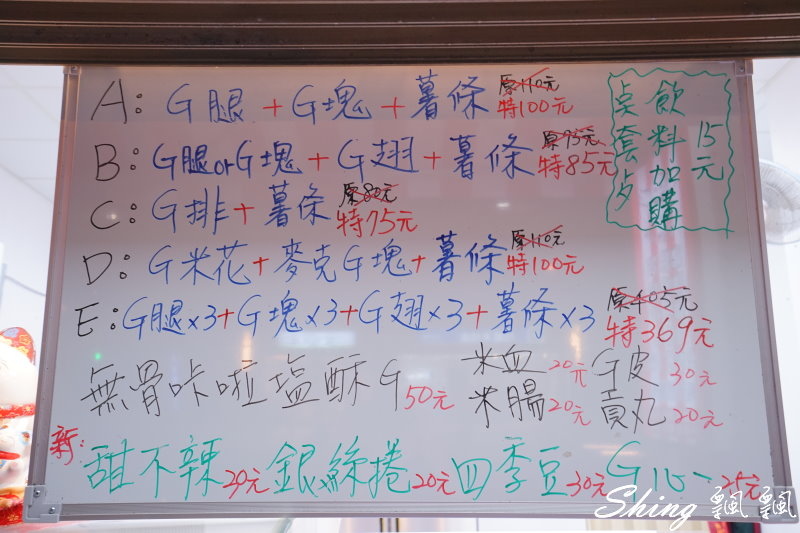 A: G腿 + G塊 + 薯條 原110元 特100元
B: G腿orG塊 + G翅 + 薯條 原95元 特85元
C: G排 + 薯條 原80元 特75元
D: G米花 + 麥克G塊 + 薯條 原110元 特100元
E: G腿x3 + G塊x3 + G翅x3 + 薯條x3 原405元 特369元
點套夕
飲料加購
15元
無骨咔啦塩酥G 50元
米血 20元 G皮 30元
米腸 20元 貢丸 20元
新:
甜不辣 20元 銀絲捲 20元 四季豆 30元 G心 25元
Shing 飄飄